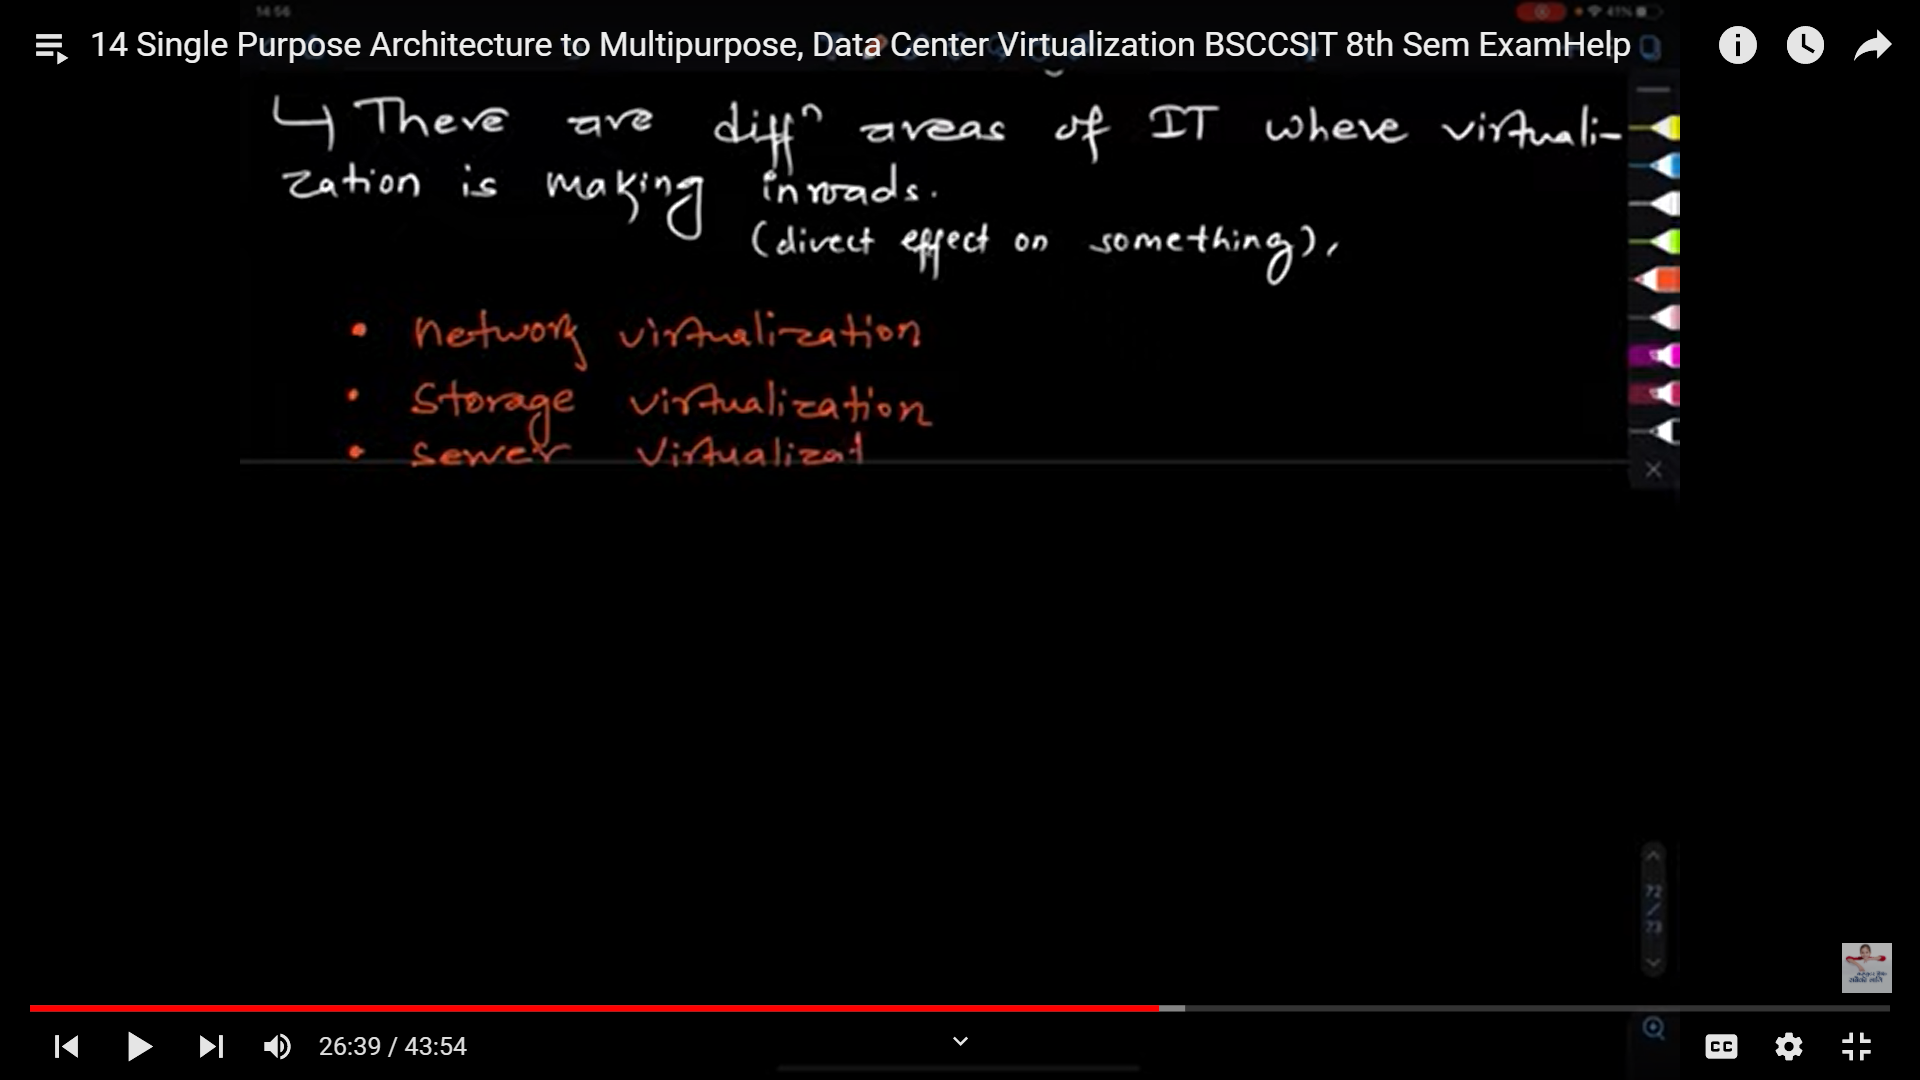 14:56
41%
14 Single Purpose Architecture to Multipurpose, Data Center Virtualization BSCCSIT 8th Sem ExamHelp
↳ There are diffⁿ areas of IT where virtuali-
zation is making inroads.
(direct effect on something),
• Network virtualization
• Storage virtualization
• Server Virtualizat
72
/
73
26:39 / 43:54
CC